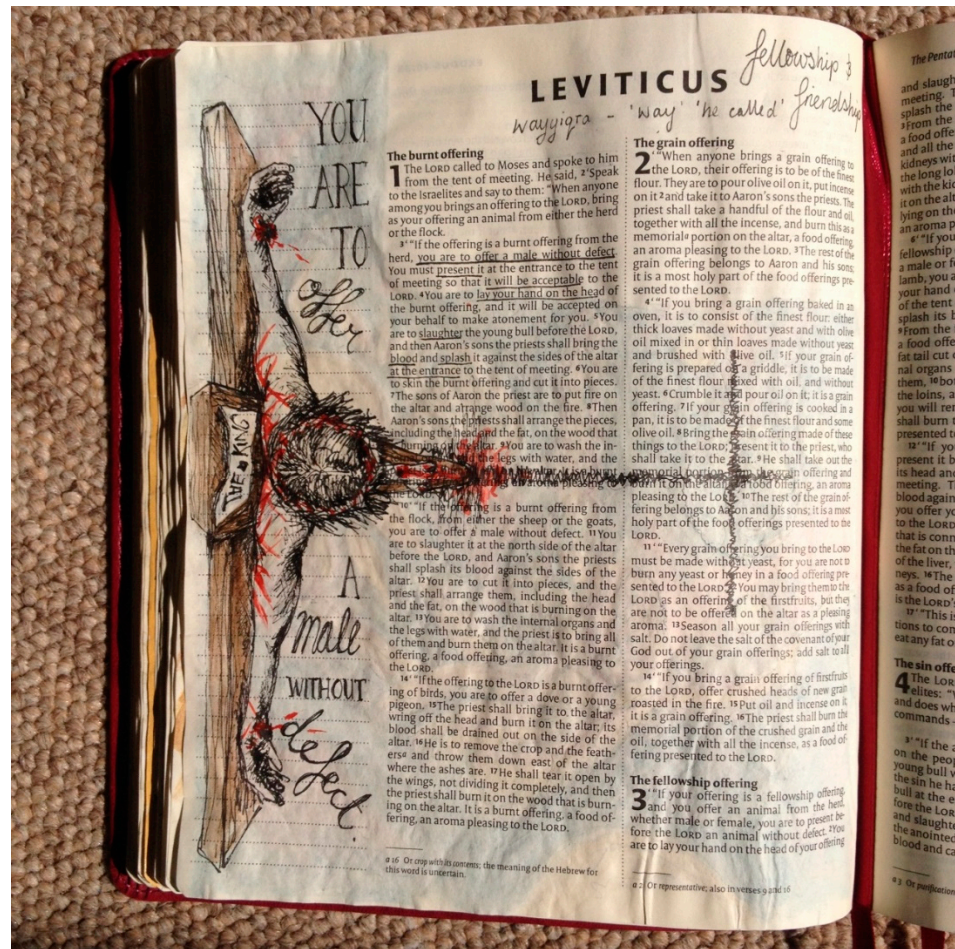 YOU
ARE
TO
offer
A
male
WITHOUT
defect.
LEVITICUS
fellowship &
friendship
wayyiqra - 'way' 'he called'
The burnt offering
1 The LORD called to Moses and spoke to him
from the tent of meeting. He said, 2 ‘Speak
to the Israelites and say to them: “When anyone
among you brings an offering to the LORD, bring
as your offering an animal from either the herd
or the flock.
3 ‘ “If the offering is a burnt offering from the
herd, you are to offer a male without defect.
You must present it at the entrance to the tent
of meeting so that it will be acceptable to the
LORD. 4 You are to lay your hand on the head of
the burnt offering, and it will be accepted on
your behalf to make atonement for you. 5 You
are to slaughter the young bull before the LORD,
and then Aaron's sons the priests shall bring the
blood and splash it against the sides of the altar
at the entrance to the tent of meeting. 6 You are
to skin the burnt offering and cut it into pieces.
7 The sons of Aaron the priest are to put fire on
the altar and arrange wood on the fire. 8 Then
Aaron's sons the priests shall arrange the pieces,
including the head and the fat, on the wood that
is burning on the altar. 9 You are to wash the in-
the legs with water, and the
it is a burnt
an aroma pleasing to
the LORD.
10 ‘ “If the offering is a burnt offering from
the flock, from either the sheep or the goats,
you are to offer a male without defect. 11 You
are to slaughter it at the north side of the altar
before the LORD, and Aaron's sons the priests
shall splash its blood against the sides of the
altar. 12 You are to cut it into pieces, and the
priest shall arrange them, including the head
and the fat, on the wood that is burning on the
altar. 13 You are to wash the internal organs and
the legs with water, and the priest is to bring all
of them and burn them on the altar. It is a burnt
offering, a food offering, an aroma pleasing to
the LORD.
14 ‘ “If the offering to the LORD is a burnt offer-
ing of birds, you are to offer a dove or a young
pigeon. 15 The priest shall bring it to the altar,
wring off the head and burn it on the altar; its
blood shall be drained out on the side of the
altar. 16 He is to remove the crop and the feath-
ers a and throw them down east of the altar
where the ashes are. 17 He shall tear it open by
the wings, not dividing it completely, and then
the priest shall burn it on the wood that is burn-
ing on the altar. It is a burnt offering, a food of-
fering, an aroma pleasing to the LORD.
a 16 Or crop with its contents; the meaning of the Hebrew for
this word is uncertain.
The grain offering
2 ‘ “When anyone brings a grain offering to
the LORD, their offering is to be of the finest
flour. They are to pour olive oil on it, put incense
on it 2 and take it to Aaron's sons the priests. The
priest shall take a handful of the flour and oil,
together with all the incense, and burn this as a
memorial a portion on the altar, a food offering,
an aroma pleasing to the LORD. 3 The rest of the
grain offering belongs to Aaron and his sons;
it is a most holy part of the food offerings pre-
sented to the LORD.
4 ‘ “If you bring a grain offering baked in an
oven, it is to consist of the finest flour: either
thick loaves made without yeast and with olive
oil mixed in or thin loaves made without yeast
and brushed with olive oil. 5 If your grain of-
fering is prepared on a griddle, it is to be made
of the finest flour mixed with oil, and without
yeast. 6 Crumble it and pour oil on it; it is a grain
offering. 7 If your grain offering is cooked in a
pan, it is to be made of the finest flour and some
olive oil. 8 Bring the grain offering made of these
things to the LORD; present it to the priest, who
shall take it to the altar. 9 He shall take out the
memorial portion from the grain offering and
burn it on the altar as a food offering, an aroma
pleasing to the LORD. 10 The rest of the grain of-
fering belongs to Aaron and his sons; it is a most
holy part of the food offerings presented to the
LORD.
11 ‘ “Every grain offering you bring to the LORD
must be made without yeast, for you are not to
burn any yeast or honey in a food offering pre-
sented to the LORD. 12 You may bring them to the
LORD as an offering of the firstfruits, but they
are not to be offered on the altar as a pleasing
aroma. 13 Season all your grain offerings with
salt. Do not leave the salt of the covenant of your
God out of your grain offerings; add salt to all
your offerings.
14 ‘ “If you bring a grain offering of firstfruits
to the LORD, offer crushed heads of new grain
roasted in the fire. 15 Put oil and incense on it;
it is a grain offering. 16 The priest shall burn the
memorial portion of the crushed grain and the
oil, together with all the incense, as a food of-
fering presented to the LORD.
The fellowship offering
3 ‘ “If your offering is a fellowship offering,
and you offer an animal from the herd,
whether male or female, you are to present be-
fore the LORD an animal without defect. 2 You
are to lay your hand on the head of your offering
a 2 Or representative; also in verses 9 and 16